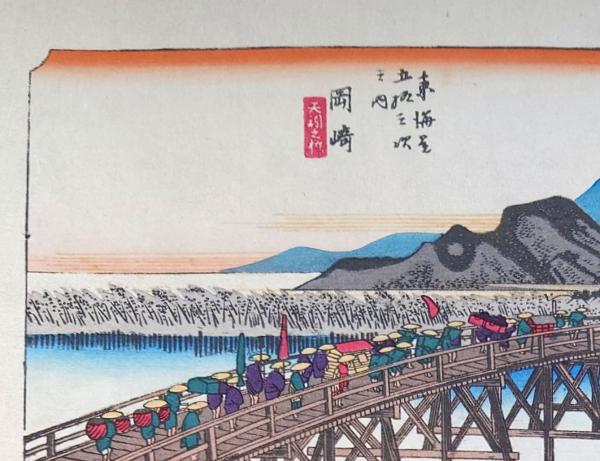 東海道
五拾三次
之内
岡崎
天矧之橋